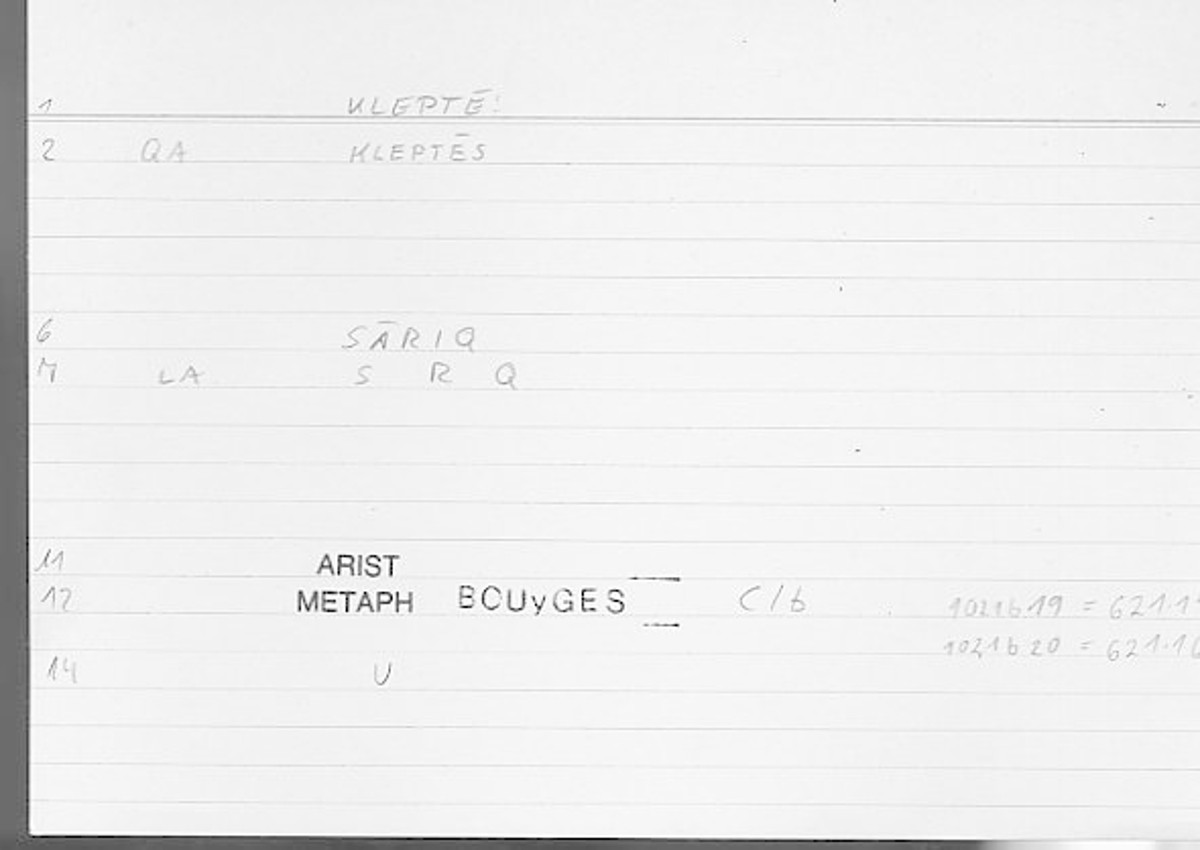 1 KLEPTĒ:
2 QA KLEPTĒS
6 SĀRIQ
7 LA S R Q
11 ARIST
12 METAPH BOUyGES C/b 1021b19 = 621.1
1021b20 = 621.16
14 U